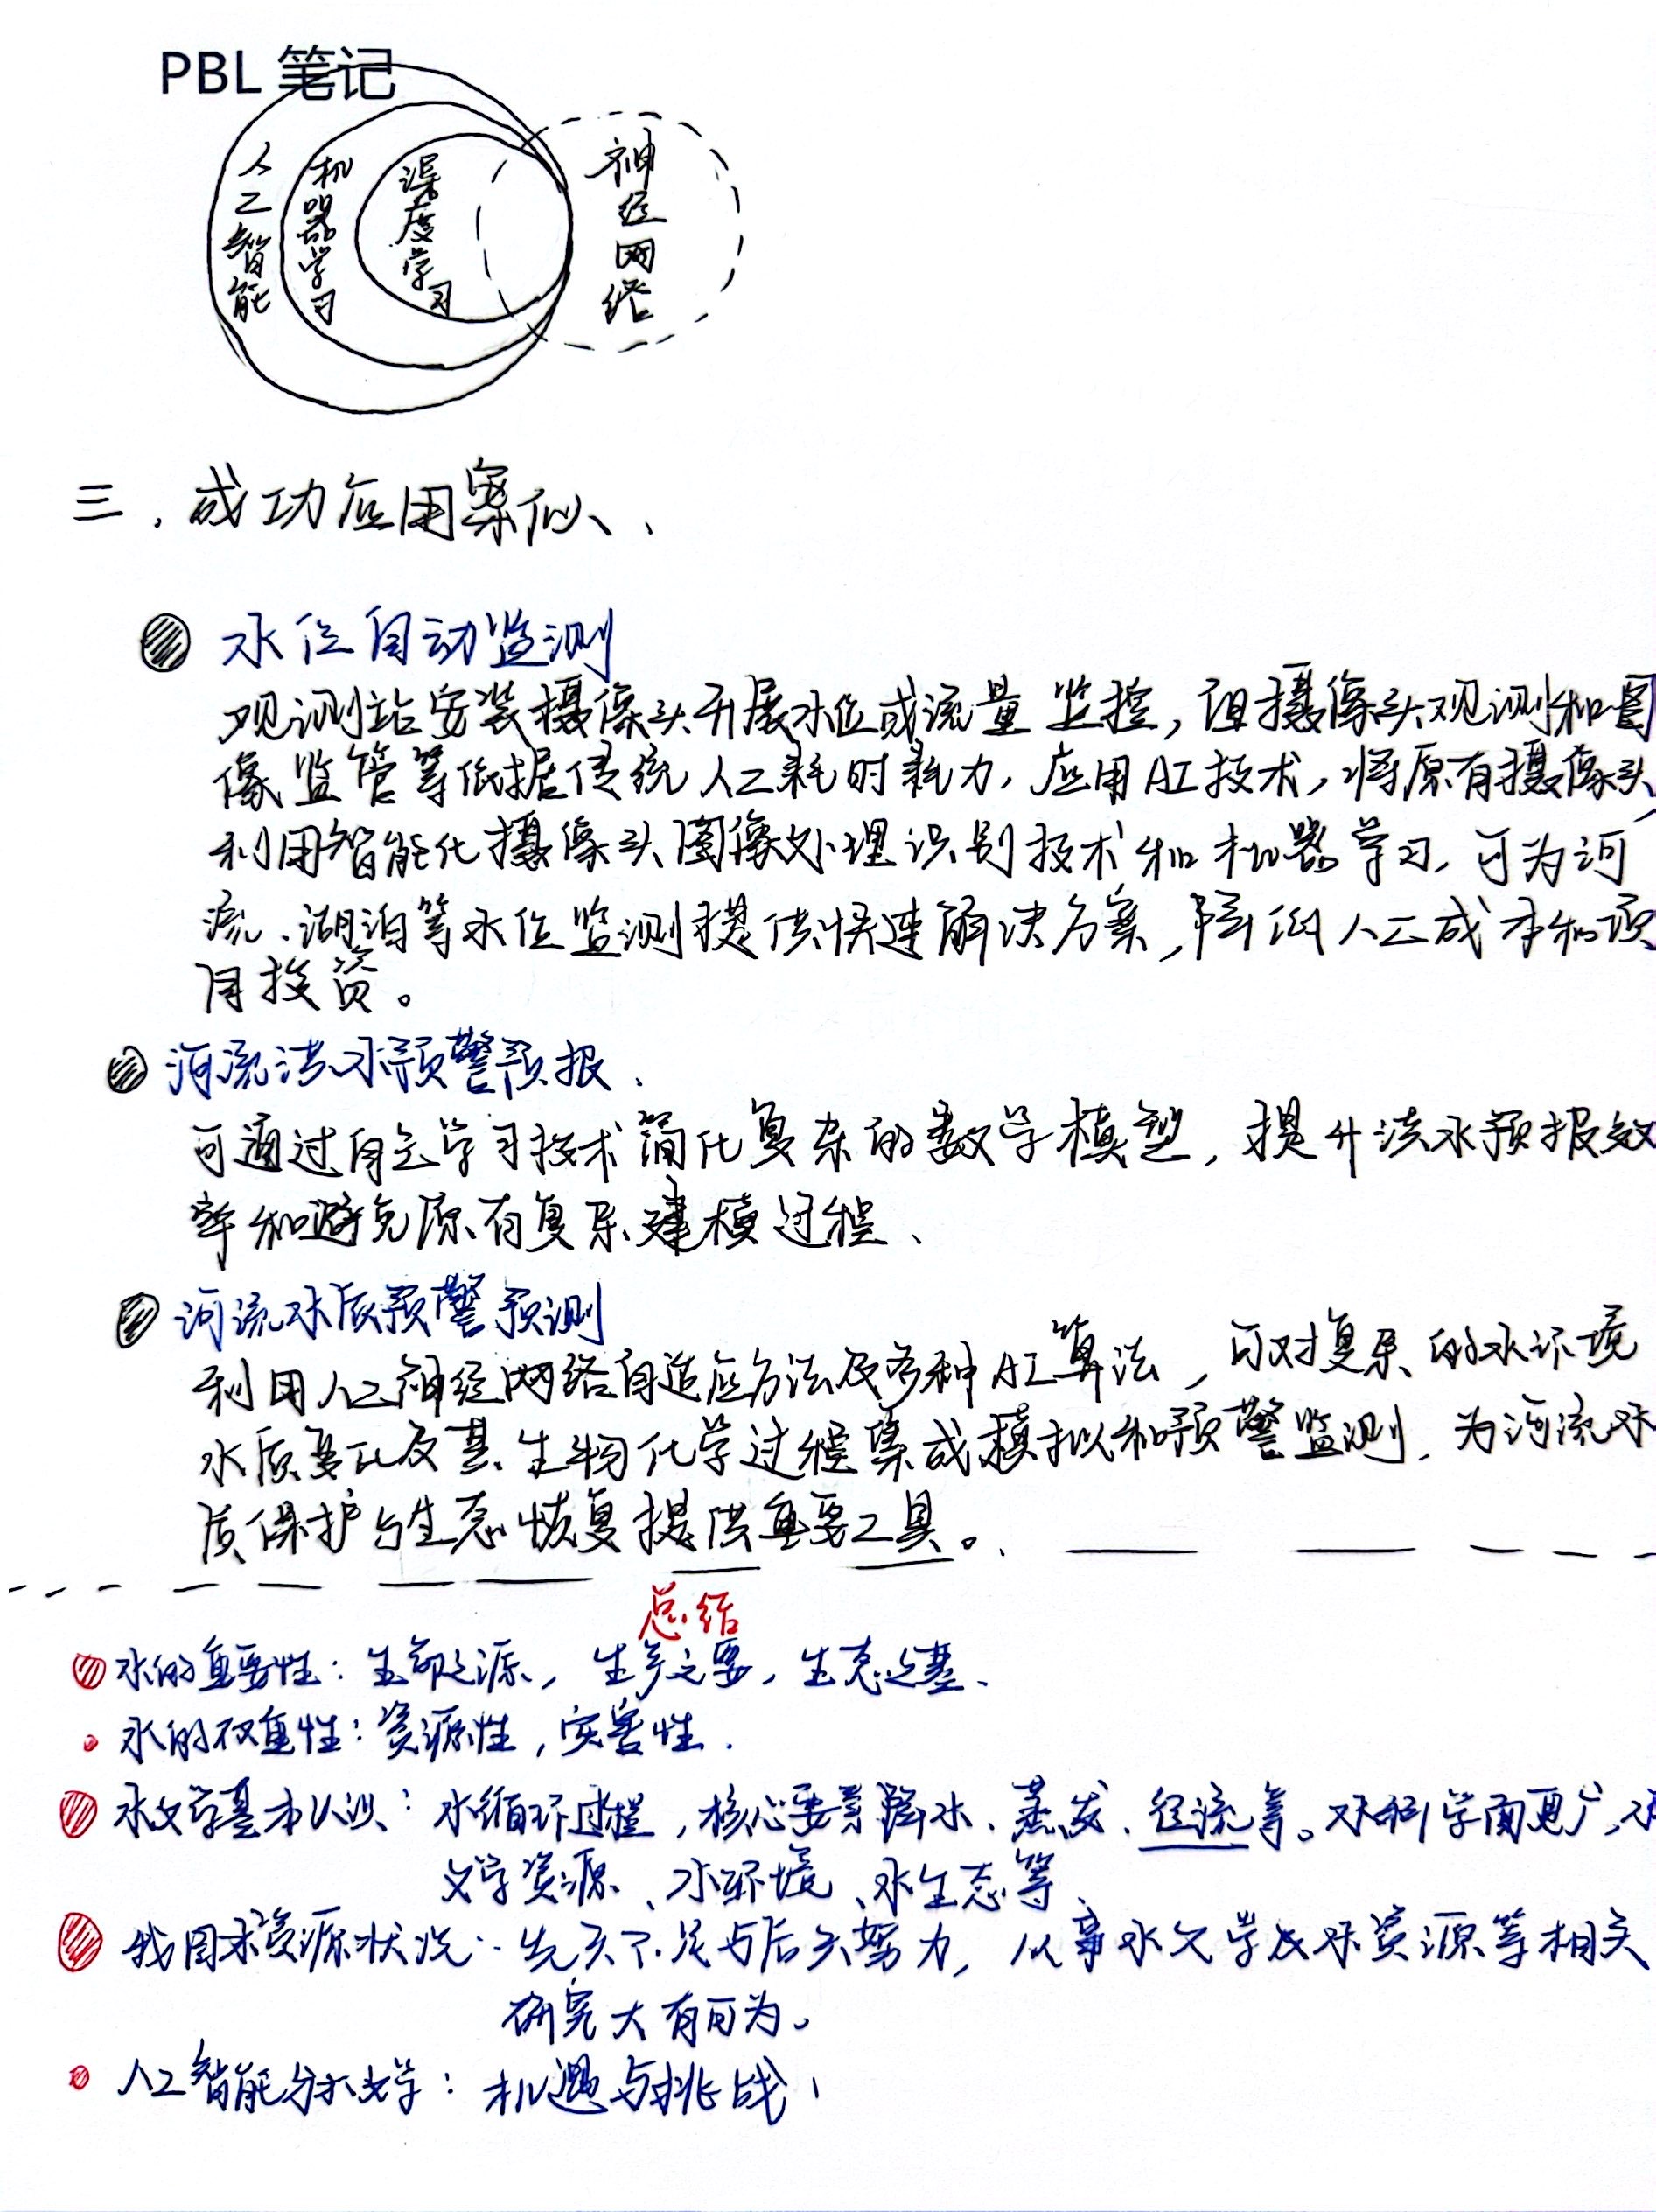 PBL 笔记
人工智能
机器学习
深度学习
神经网络
三、成功应用案例、
水位自动监测
观测站安装摄像头开展水位或流量监控，但摄像头观测和图
像监管等依据传统人工耗时耗力，应用AI技术，将原有摄像头，
利用智能化摄像头图像处理识别技术和机器学习，可为河
流、湖泊等水位监测提供快速解决方案，降低人工成本和项
目投资。
河流洪水预警预报、
可通过自主学习技术简化复杂的数学模型，提升洪水预报效
率和避免原有复杂建模过程、
河流水质预警预测
利用人工神经网络自适应方法及多种AI算法，可对复杂的水环境
水质变化及其生物化学过程集成模拟和预警监测，为河流水
质保护与生态恢复提供重要工具。
总结
水的重要性：生命之源，生产之要，生态之基、
水的双重性：资源性，灾害性．
水文学基本认识：水循环过程，核心要素降水、蒸发、径流等。水科学面更广，水
文学资源、水环境、水生态等、
我国水资源状况：先天不足与后天努力，从事水文学及水资源等相关
研究大有可为。
人工智能与水文学：机遇与挑战